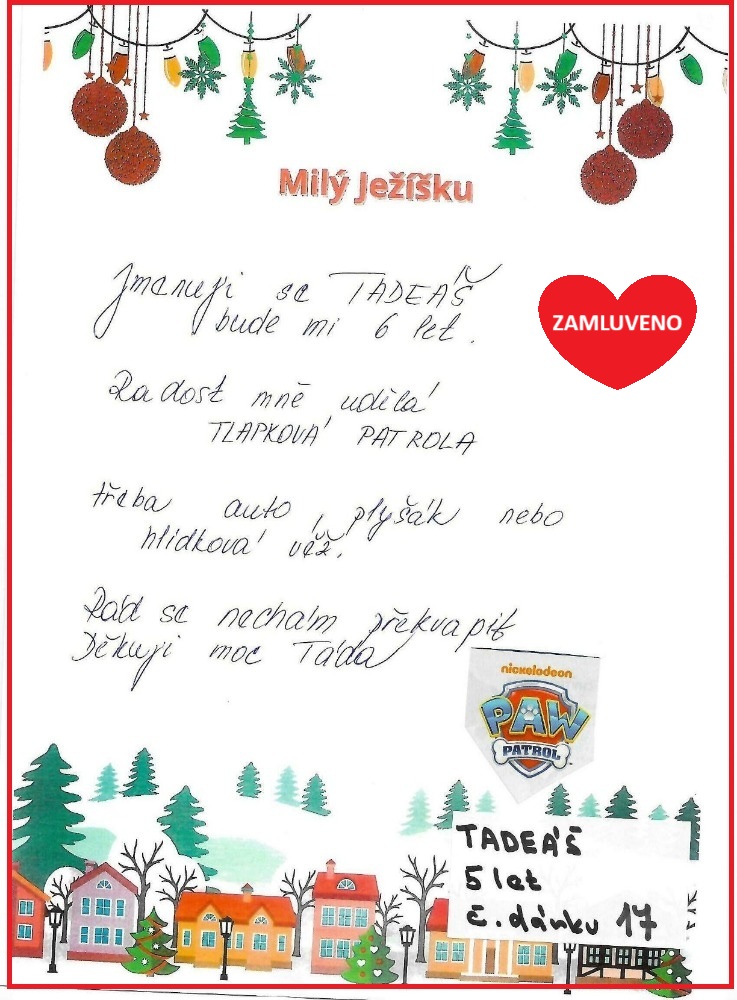 Milý Ježíšku
Jmenuji se TADEÁŠ
bude mi 6 let.
ZAMLUVENO
Radost mně udělá
TLAPKOVÁ PATROLA
třeba auto, plyšák nebo
hlídková věž.
Rád se nechám překvapit
Děkuji moc Táďa
nickelodeon
PAW
PATROL
TADEÁŠ
5 let
č. dárku 17